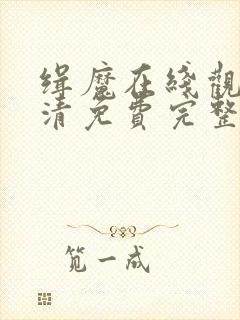 缉魔在綫觀
清免費完整
笕一成